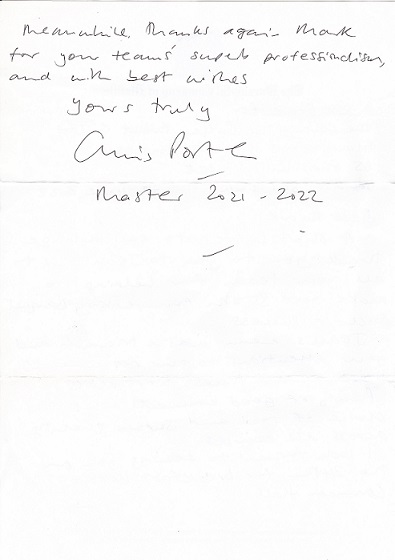 Meanwhile, thanks again Mark
for your teams' superb professionalism,
and with best wishes
Yours truly
Chris Porter
Master 2021 - 2022